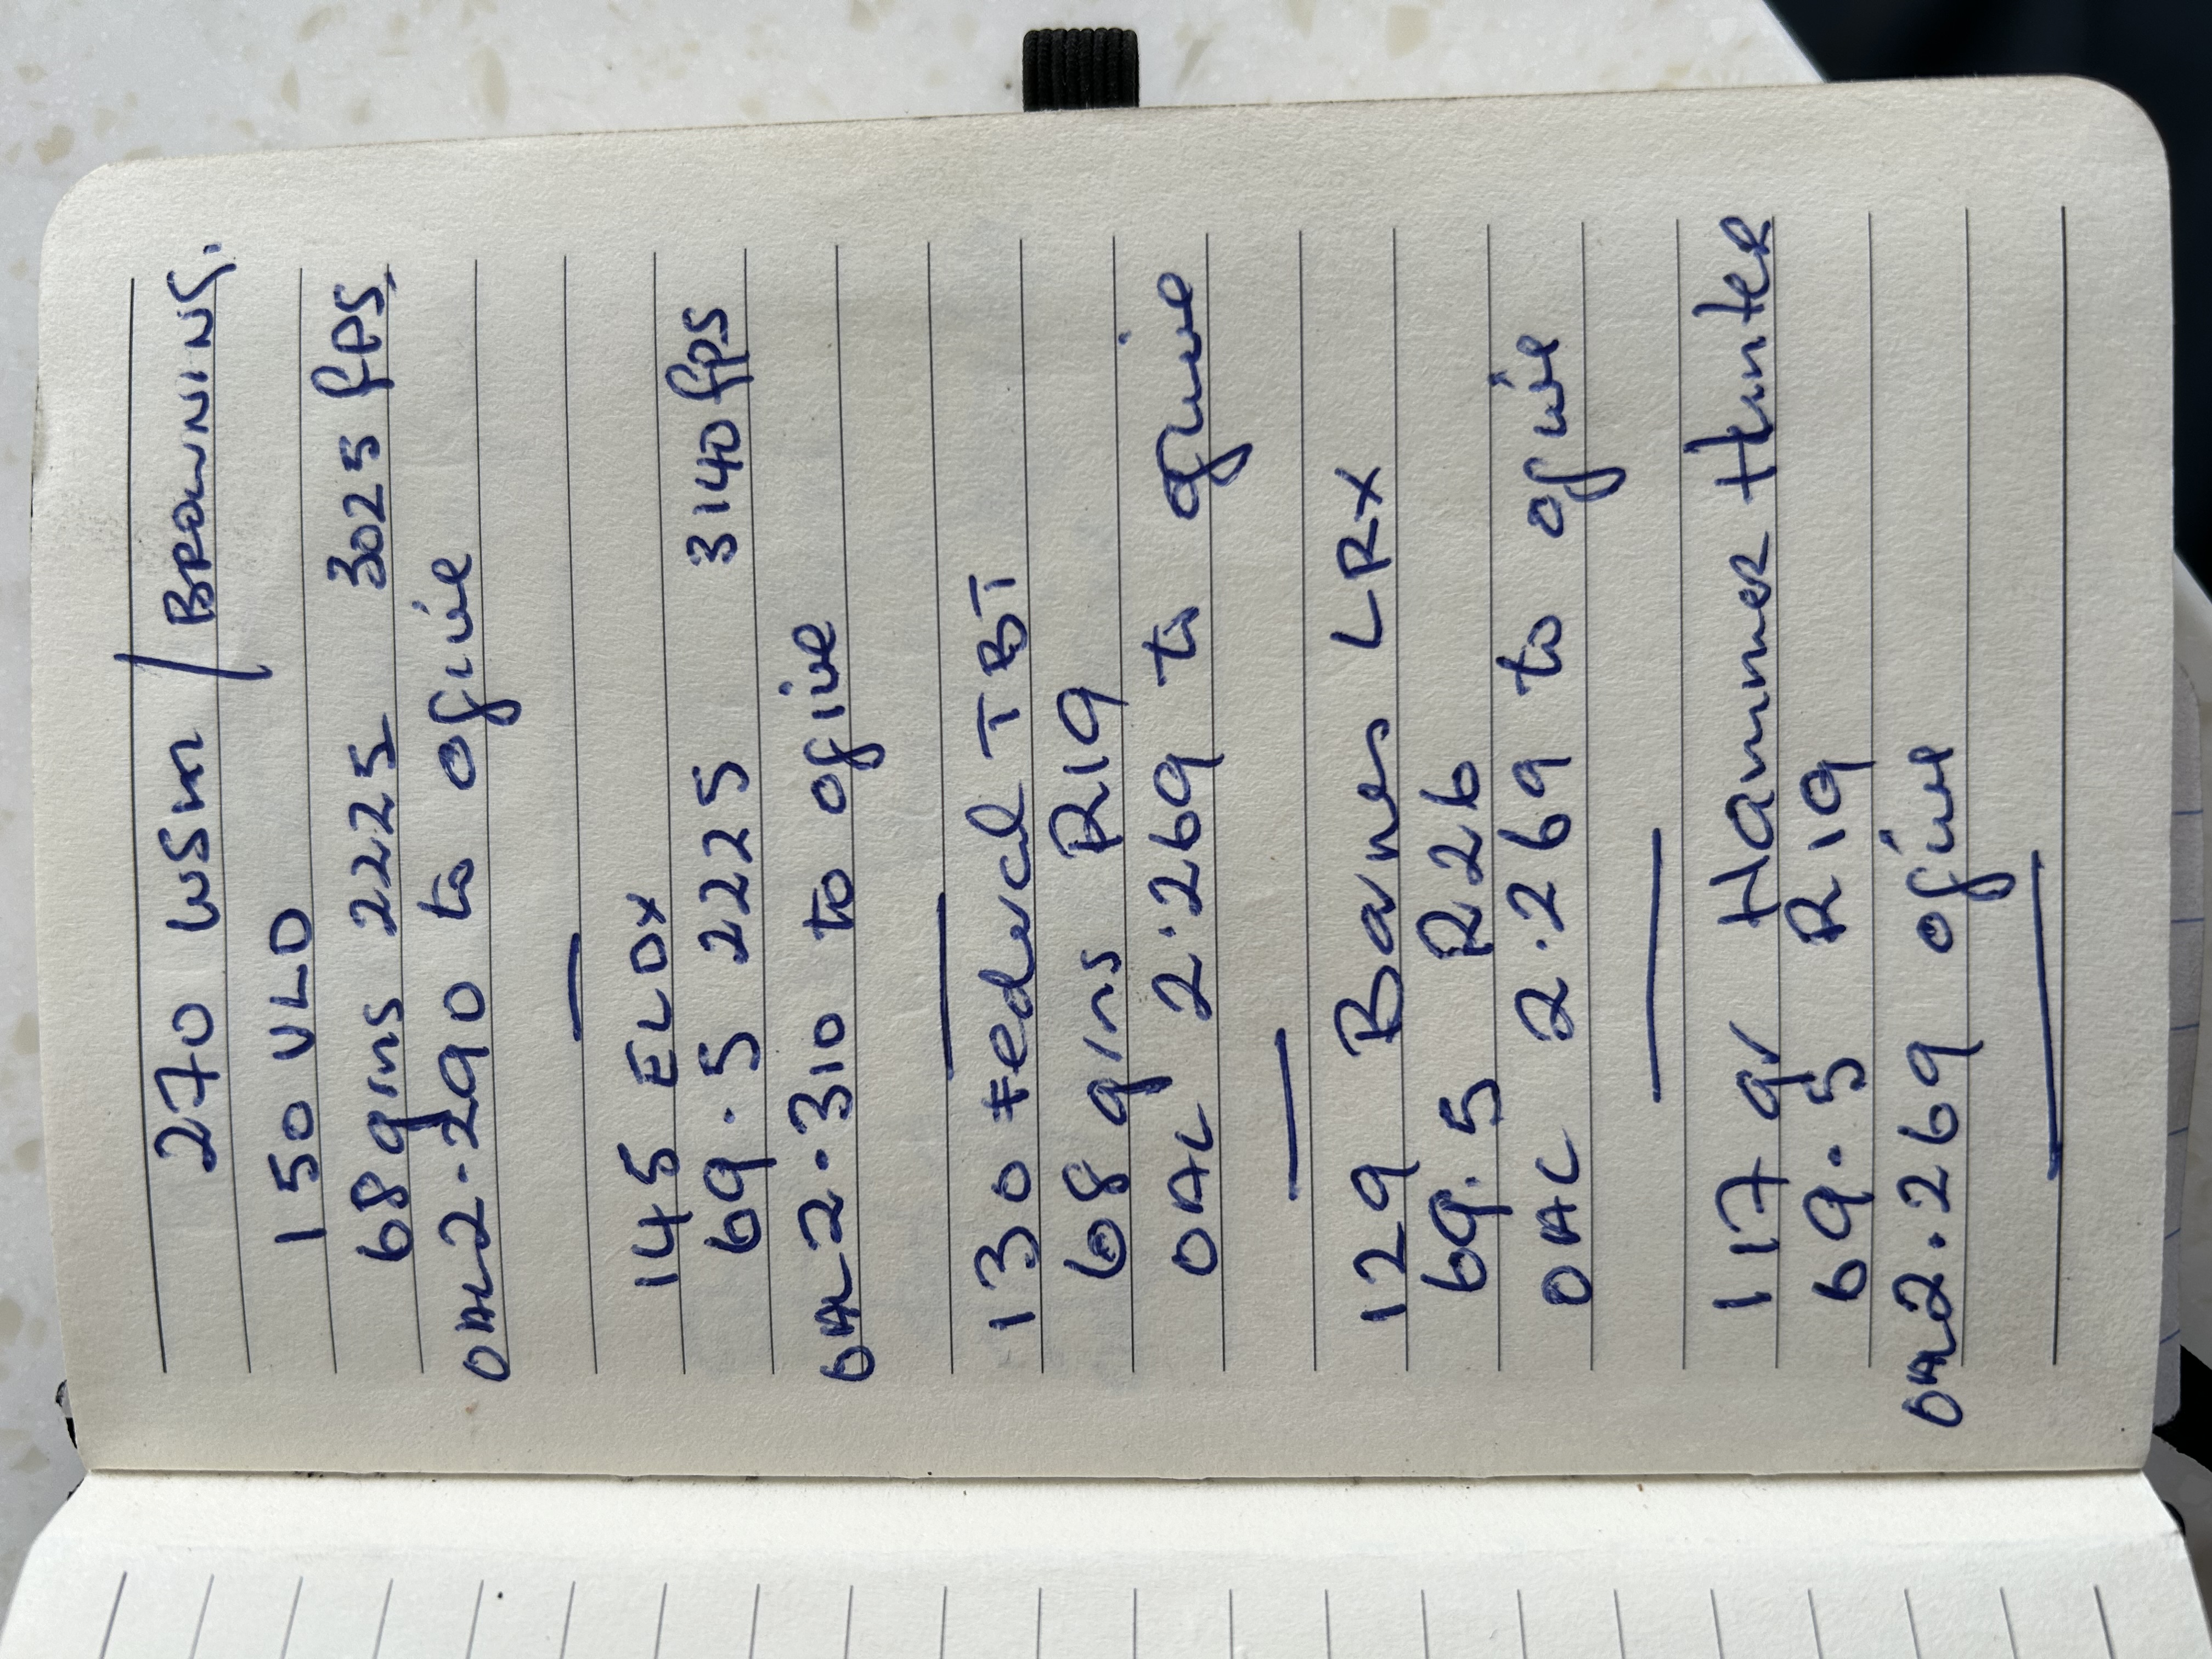 270 WSM / BROWNING.
150 VLD
68 grns 2225 3025 fps.
OAL 2.290 to ogive
145 ELDX
69.5 2225 3140 fps
OAL 2.310 to ogive
130 Federal TBT
68 grns R19
OAL 2.269 to ogive
129 Barnes LRX
69.5 R26
OAL 2.269 to ogive
117 gr Hammer Hunter
69.5 R19
OAL 2.269 ogive